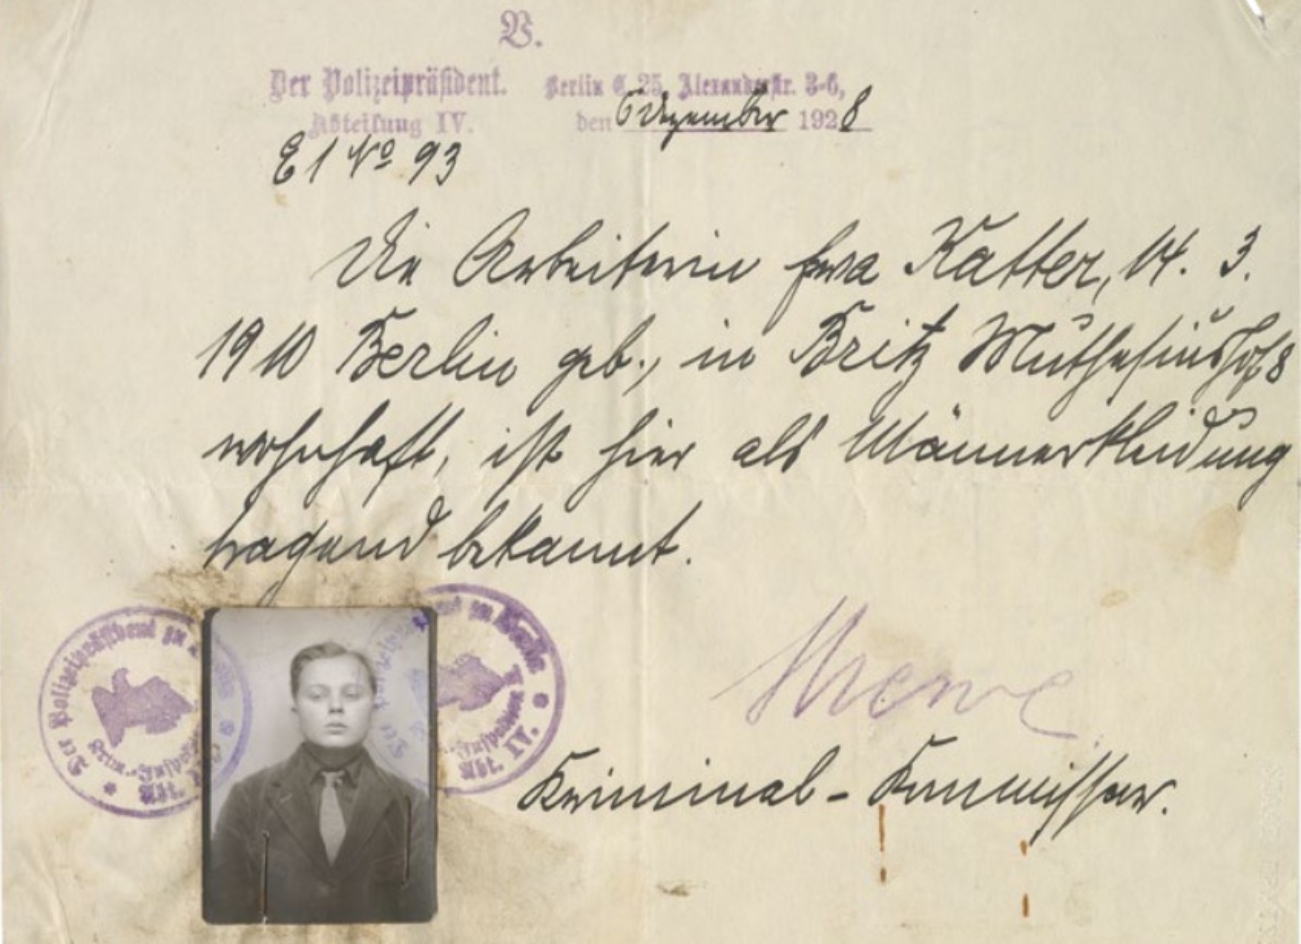 V.
Der Polizeipräsident. Berlin C. 25, Alexanderstr. 3-6,
Abteilung IV. den 6 Dezember 1928
E 1 No 93
Die Arbeiterin Eva Katter, 14. 3.
1910 Berlin geb., in Britz Muthesiushof 8
wohnhaft, ist hier als Männerkleidung
tragend bekannt.
Der Polizeipräsident zu
Krim.-Inspektion
Abt.
zu Berlin
Inspektion
Abt. IV.
Kriminal-Kommissar.